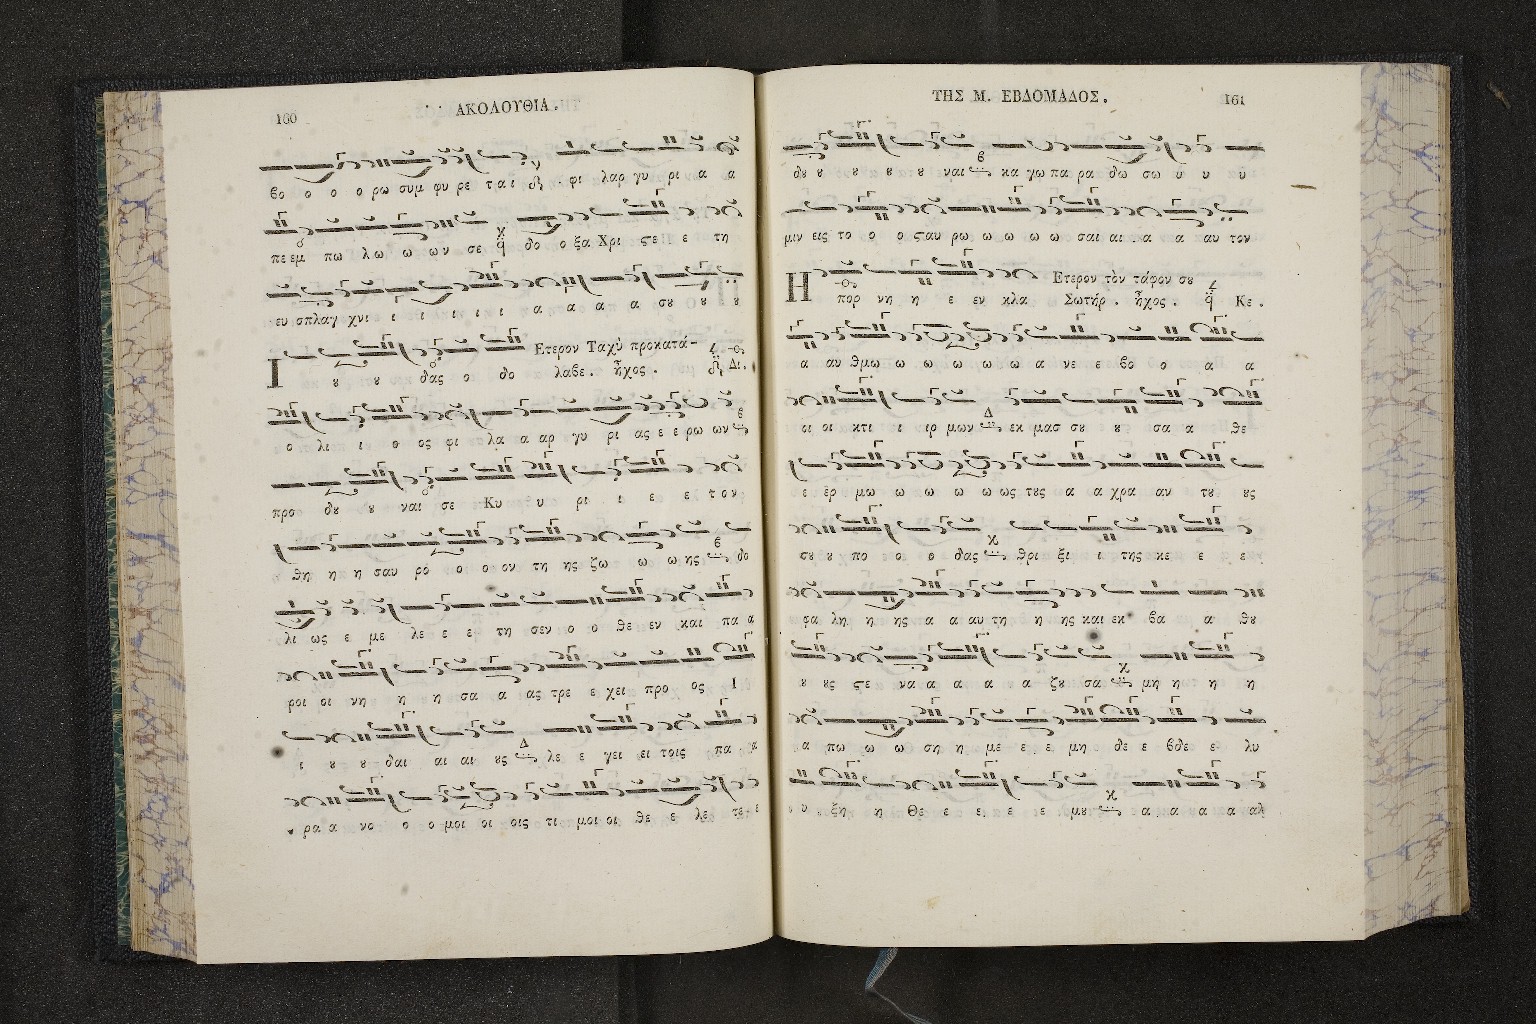 160
ΑΚΟΛΟΥΘΙΑ.
βο ο ο ο ρω συμ φυ ρε ται φι λαρ γυ ρι α α
πε εμ πω λω ω ων σε δο ο ξα Χρι ϛε ε τη
ευ σπλαγ χνι ι ι ι ι ι α α α α σȣ ȣ ȣ
Ετερον Ταχὺ προκατά-
Ι ȣ ȣ δας ο δο λαβε. ἦχος. Δι.
ο λι ι ο ος φι λα α αρ γυ ρι ας ε ε ρω ων
προ δȣ ȣ ναι σε Κυ υ ρι ι ε ε τον
θη η η σαυ ρὸ ο ο ον τη ης ζω ω ω ης δο
λι ως ε με λε ε ε τη σεν ο ο θε εν και πα α
ροι οι νη η η σα α ας τρε ε χει προ ος Ι
ι ȣ ȣ δαι αι αι ȣς λε ε γει ει τοις πα α
ρα α νο ο ο μοι οι οις τι μοι οι θε ε λε τε ε
ΤΗΣ Μ. ΕΒΔΟΜΑΔΟΣ.
161
δȣ ȣ ȣ ȣ ȣ ναι κα γω πα ρα δω σω υ υ υ
μιν εις το ο ο σταυ ρω ω ω ω ω σαι αι α α αυ τον
Ετερον τὸν τάφον σȣ
Η πορ νη η ε εν κλα Σωτήρ. ἦχος. Κε.
α αυ θμω ω ω ω ω ω α νε ε βο ο α α
οι οι κτι ι ιρ μων εκ μασ σȣ ȣ σα α θε
ε ὲρ μω ω ω ω ω ως τȣς α α χρα αν τȣ ȣς
σȣ ȣ πο ο ο ο δας θρι ξι ι της κε ε ε
φα λη η ης α α αυ τη η ης και εκ βα α θȣ
ȣ ȣς ϛε να α α α α ζȣ σα μη η η η
α πω ω ω ση η με ε ε μη δε ε βδε ε λυ
υ υ ξη η Θε ε ε ε ε μȣ α α α α αλ